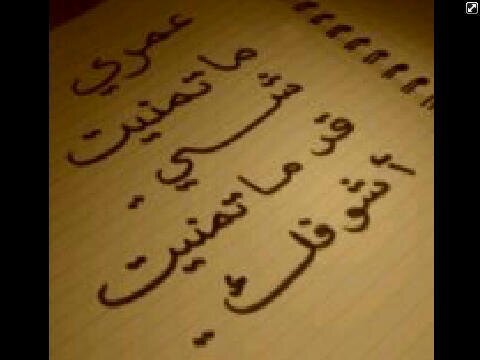 عمري
ما تمنيت
شـــي ..
قد ما تمنيت
أشوفك ..